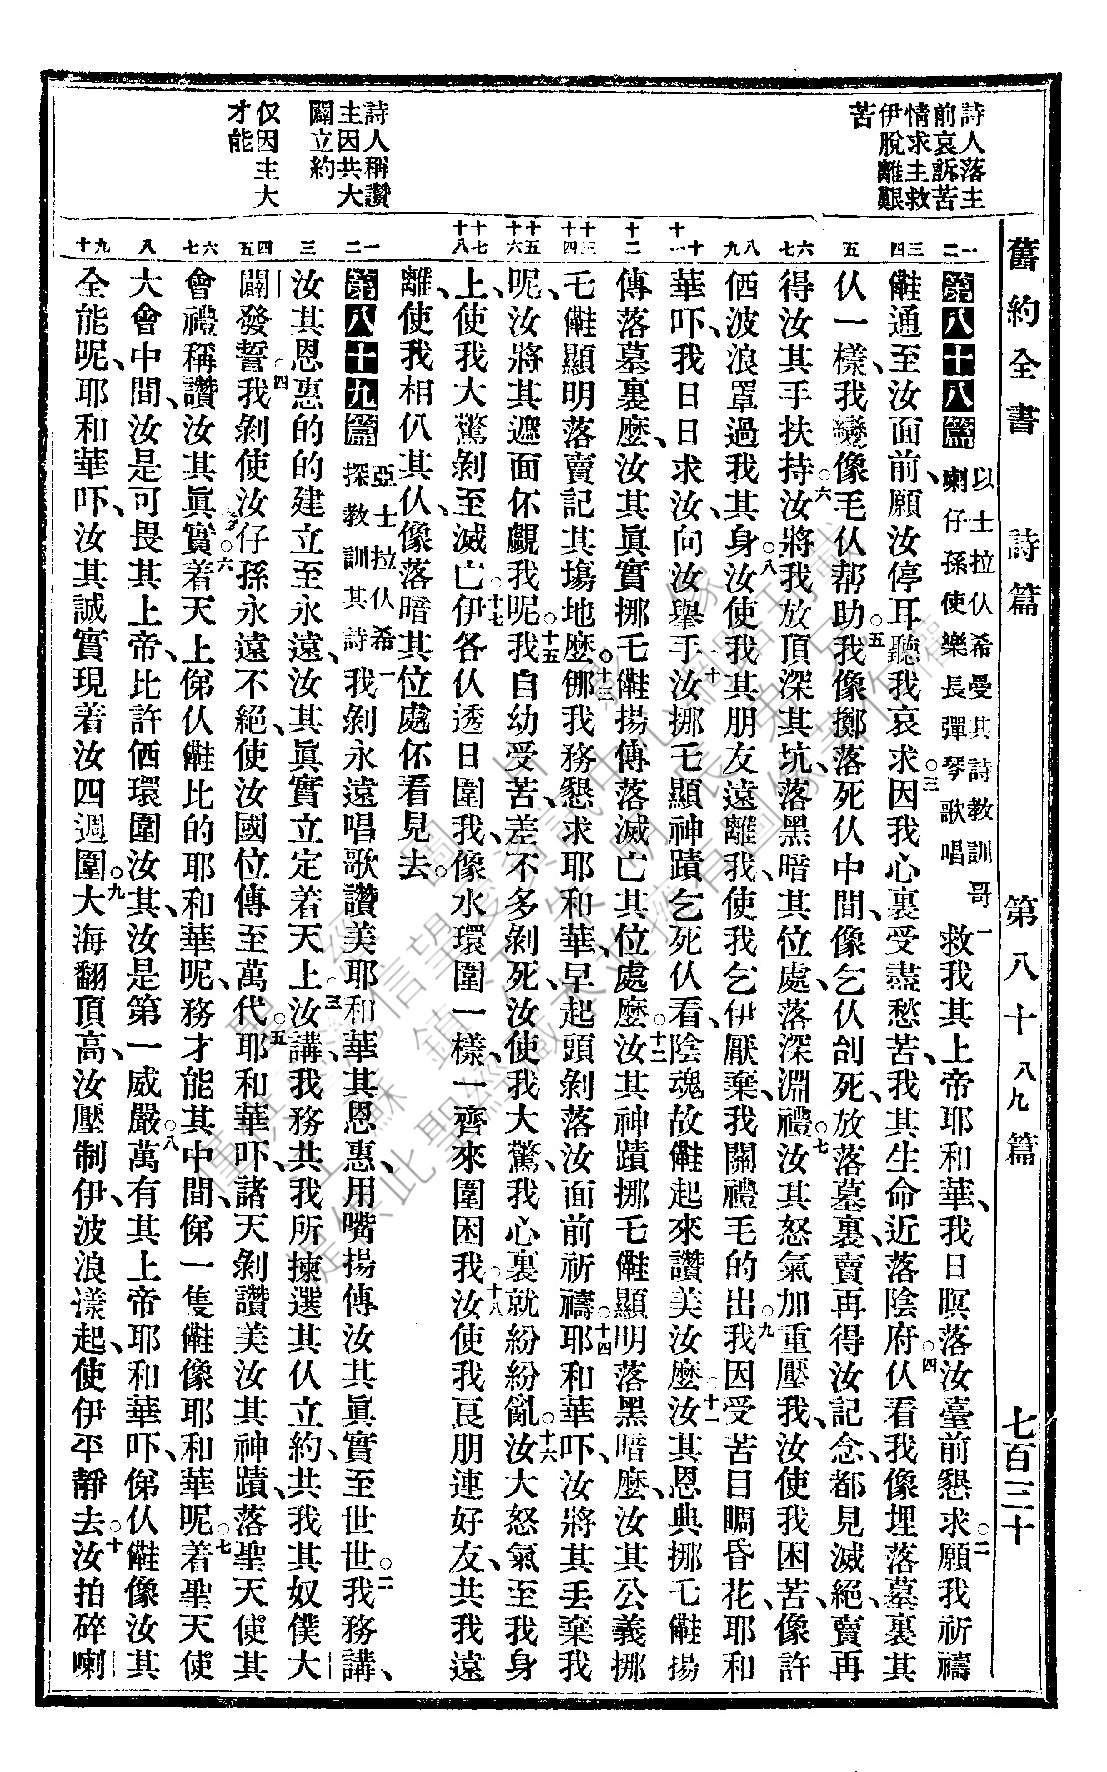 舊約全書 詩篇 第八十八九篇 七百三十
詩人落主
前哀訴苦
情求主救
伊脫離艱
苦
詩人稱讚
主因共大
闢立約
仅因主大
才能
一二
三四
五
六七
八九
十十一
十二
十三十四
十五十六
十七十八
一二
三
四五
六七
八
九十
第八十八篇 以士拉仈希曼其詩教訓哥
喇仔孫使樂長彈琴歌唱 一救我其上帝耶和華、我日暝落汝臺前懇求○二願我祈禱
𣍐通至汝面前、願汝停耳聽我哀求○三因我心裏受盡愁苦、我其生命近落陰府○四仈看我像埋落墓裏其
仈一樣、我變像毛仈幫助○五我像擲落死仈中間、像乞仈刣死、放落墓裏、賣再得汝記念、都見滅絕、賣再
得汝其手扶持○六汝將我放頂深其坑、落黑暗其位處、落深淵禮○七汝其怒氣加重壓我、汝使我困苦、像許
㑚波浪罩過我其身○八汝使我其朋友遠離我、使我乞伊厭棄、我關禮毛的出○九我因受苦目睭昏花、耶和
華吓、我日日求汝、向汝舉手○十汝挪乇顯神蹟乞死仈看、陰魂故𣍐起來讚美汝麽○十一汝其恩典挪乇𣍐揚
傳落墓裏麽、汝其眞實挪乇𣍐揚傳落滅亡其位處麽○十二汝其神蹟挪乇𣍐顯明落黑暗麽、汝其公義挪
乇𣍐顯明落賣記其塲地麽○十三挪我務懇求耶和華、早起頭剝落汝面前祈禱○十四耶和華吓、汝將其丟棄我
呢、汝將其遮面伓覰我呢○十五我自幼受苦、差不多剝死、汝使我大驚、我心裏就紛紛亂○十六汝大怒氣至我身
上、使我大驚剝至滅亡○十七伊各仈透日圍我、像水環圍一樣、一齊來圍困我○十八汝使我良朋連好友共我遠
離、使我相仈其仈像落暗其位處伓看見去○
第八十九篇 亞士拉仈希
探教訓其詩 一我剝永遠唱歌讚美耶和華其恩惠、用嘴揚傳汝其眞實至世世○二我務講、
汝其恩惠的的建立至永遠、汝其眞實立定着天上○三汝講、我務共我所揀選其仈立約、共我其奴僕大
闢發誓○四我剝使汝仔孫永遠不絕、使汝國位傳至萬代○五耶和華吓、諸天剝讚美汝其神蹟、落聖天使其
會禮稱讚汝其眞實○六着天上俤仈𣍐比的耶和華呢、務才能其中間、俤一隻𣍐像耶和華呢○七着聖天使
大會中間、汝是可畏其上帝、比許㑚環圍汝其、汝是第一威嚴○八萬有其上帝耶和華吓、俤仈𣍐像汝其
全能呢、耶和華吓、汝其誠實現着汝四週圍○九大海翻頂高、汝壓制伊、波浪漾起、使伊平靜去○十汝拍碎喇